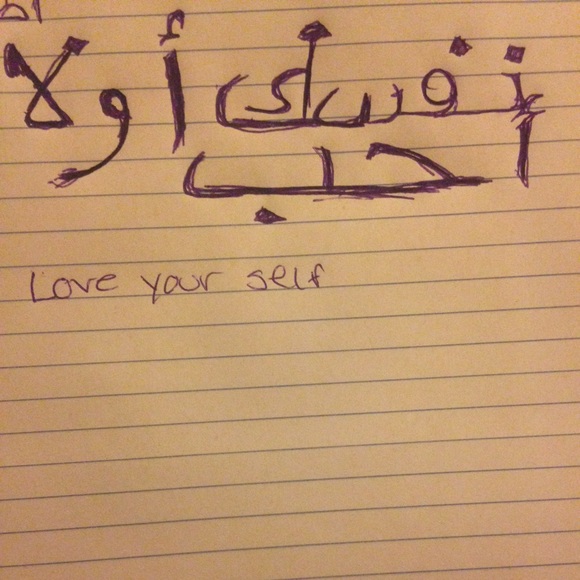 نفسك أولا
أحب
Love your self